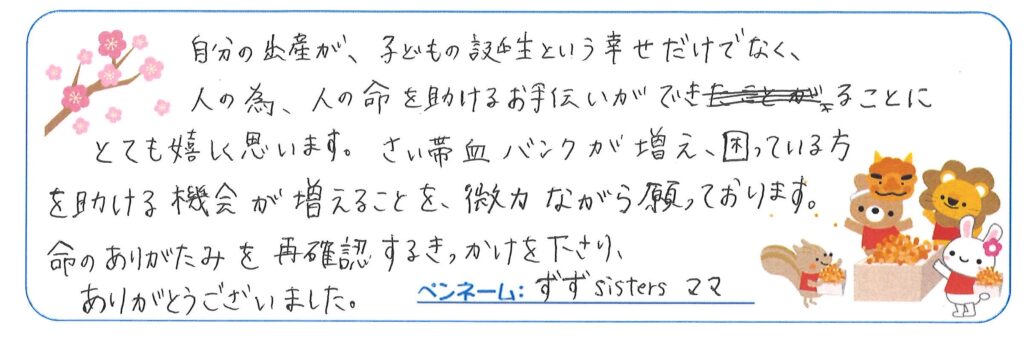 自分の出産が、子どもの誕生という幸せだけでなく、
人の為、人の命を助けるお手伝いができることに
とても嬉しく思います。さい帯血バンクが増え、困っている方
を助ける機会が増えることを、微力ながら願っております。
命のありがたみを再確認するきっかけを下さり、
ありがとうございました。
ペンネーム：ずずsisters ママ